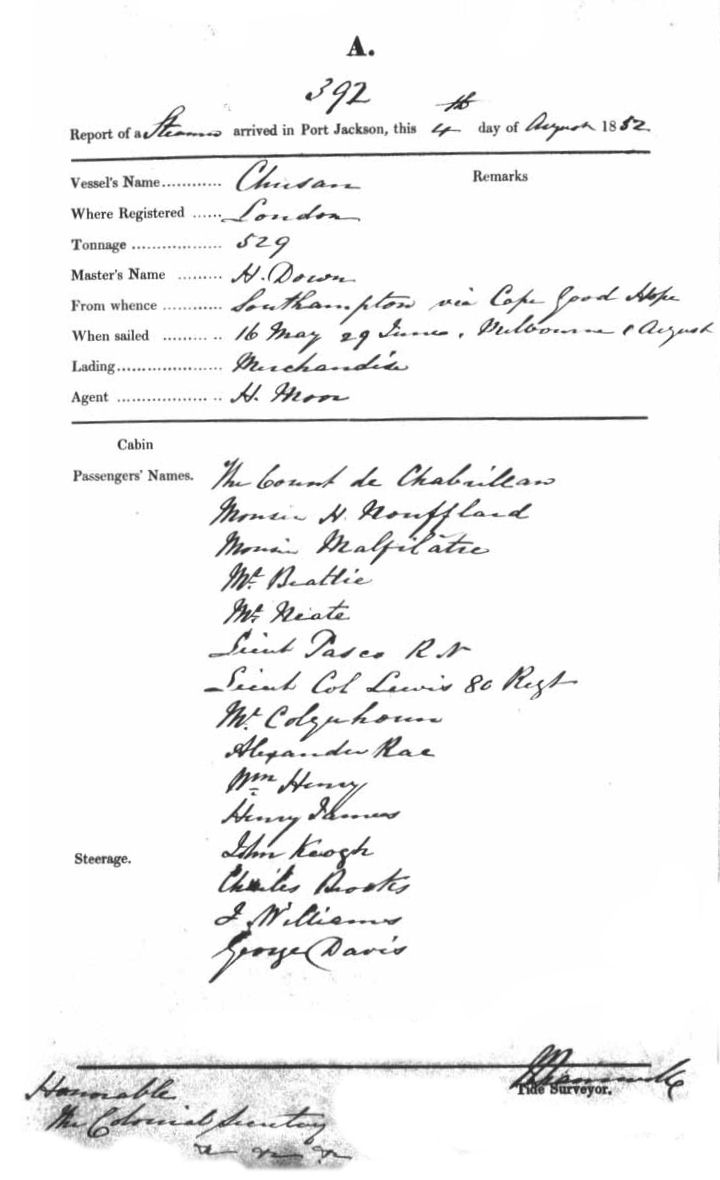 A.
392
Report of a Steamer arrived in Port Jackson, this 4th day of August 1852.
Vessel's Name............ Chusan
Remarks
Where Registered ...... London
Tonnage .................. 529
Master's Name ......... H. Down
From whence ............ Southampton via Cape Good Hope
When sailed ......... .. 16 May 29 June, Melbourne August
Lading..................... Merchandise
Agent .................. .. H. Moor
Cabin
Passengers' Names. The Count de Chabrillan
H. Noufflard
Malfilâtre
Mr. Beattie
Mr. Neate
Lieut Pasco R N
Lieut Col Lewis 80 Regt
Mr. Colquhoun
Alexander Rae
Wm Henry
Henry James
Steerage. John Keogh
Charles Brooks
J. Williams
George Davis
Tide Surveyor.
Honorable
The Colonial Secretary